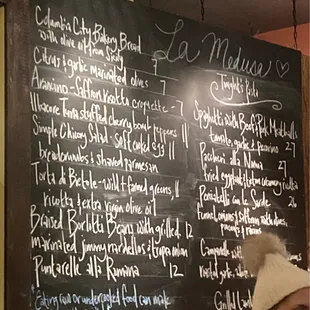 Columbia City Bakery Bread
with olive oil from Sicily 7
Citrus & garlic marinated olives 7
Arancino - Saffron risotto croquette - 7
Albacore Tuna stuffed cherry bomb peppers 11
Simple Chicory Salad - soft cooked egg 11
breadcrumbs & shaved parmesan
Torta di Bietole - wild + farmed greens, 11
ricotta & extra virgin olive oil
Braised Borlotti Beans with grilled 12
marinated jimmy nardellos & tropea onion
Puntarelle alla Romana 12
Eating raw or undercooked food can make
La Medusa
Tonight's Pasta
Spaghetti with Beef & Pork Meatballs
tomato, garlic & pecorino 27
Paccheri alla Norma 27
fried eggplant,
Perciatelli con le Sarde 26
fennel, onions & saffron with olives,
Campanelle with
roasted garlic
Grilled